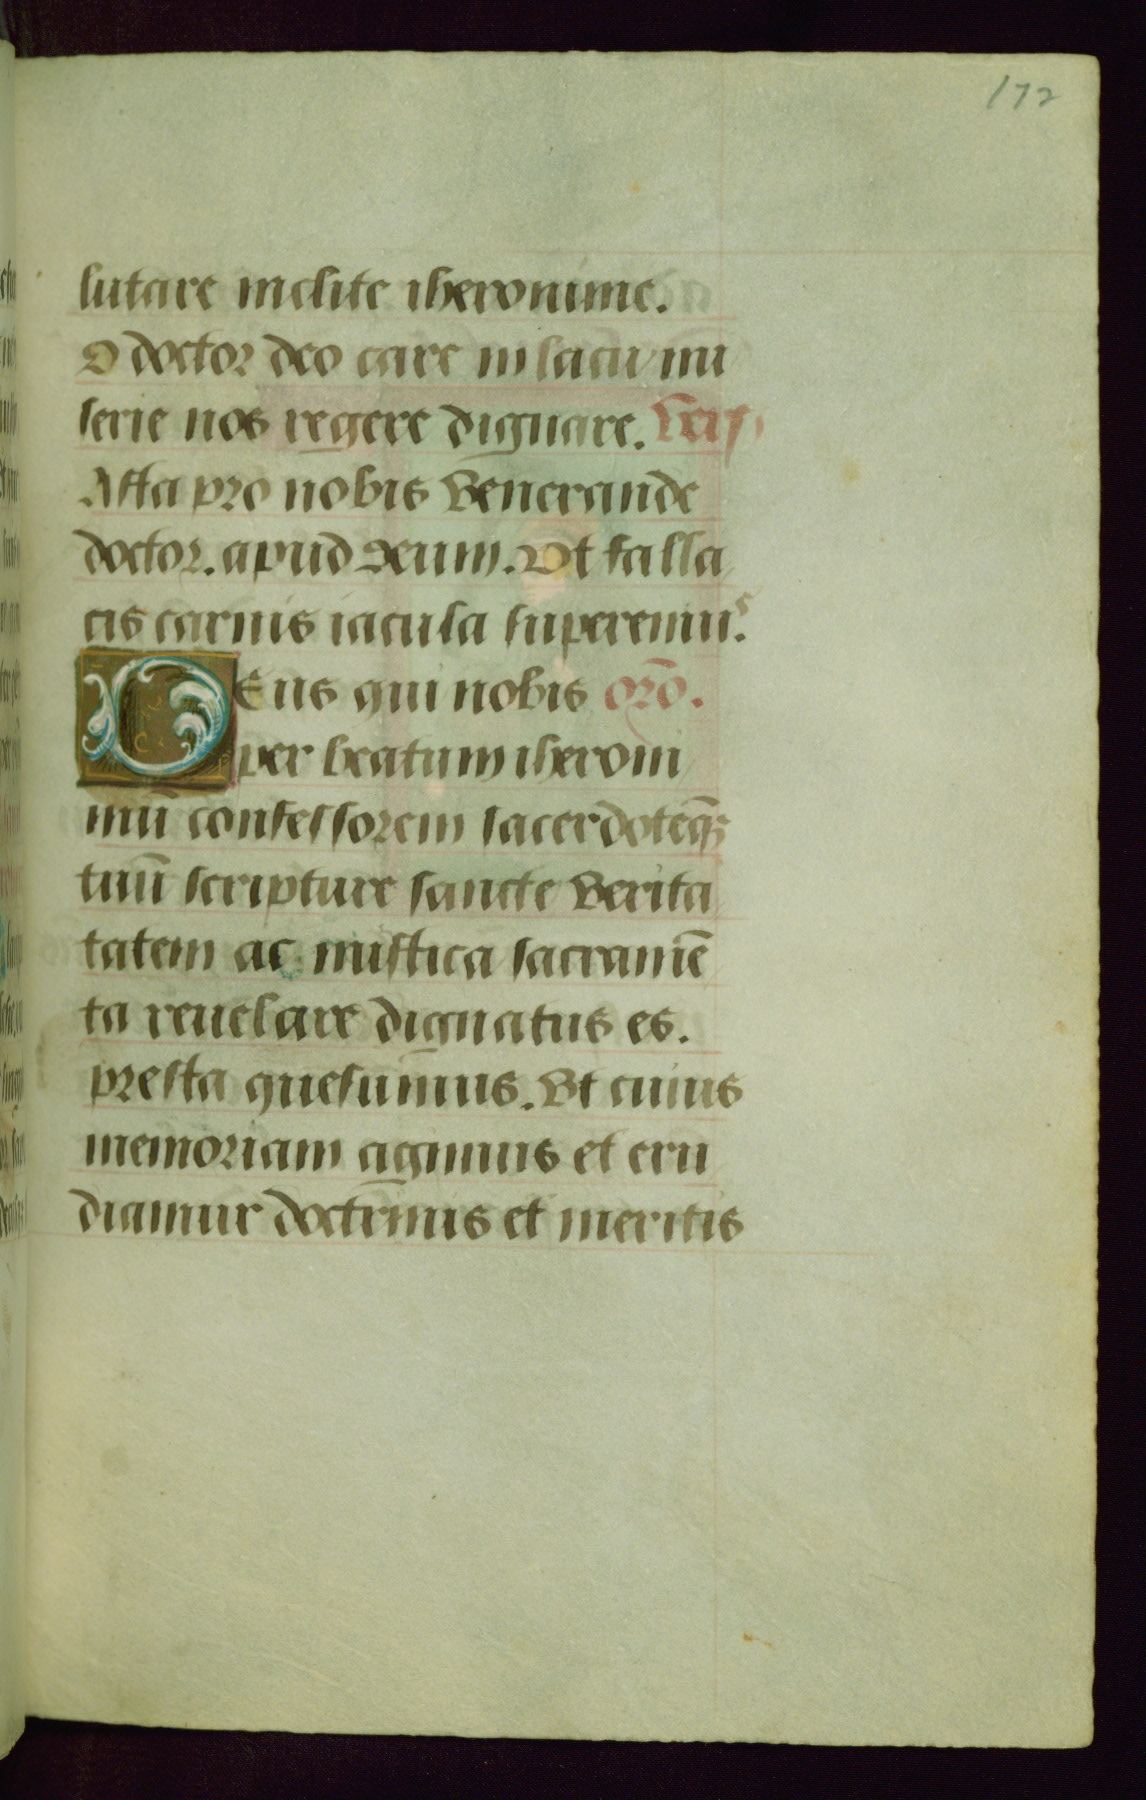 172
lutare inclite iheronime.
O doctor deo care in lacu mi
serie nos regere dignare. Vers
Asta pro nobis Venerande
doctor. apud deum. Vt falla
cis carnis iacula superemus.
Deus qui nobis orõ.
per beatum iheroni
mũ confessorem sacerdoteq̃ꝫ
tuũ scripture sancte Verita
tatem ac mistica sacramẽ
ta reuelare dignatus es.
presta quesumus. Vt cuius
memoriam agimus et eru
diamur doctrinis et meritis